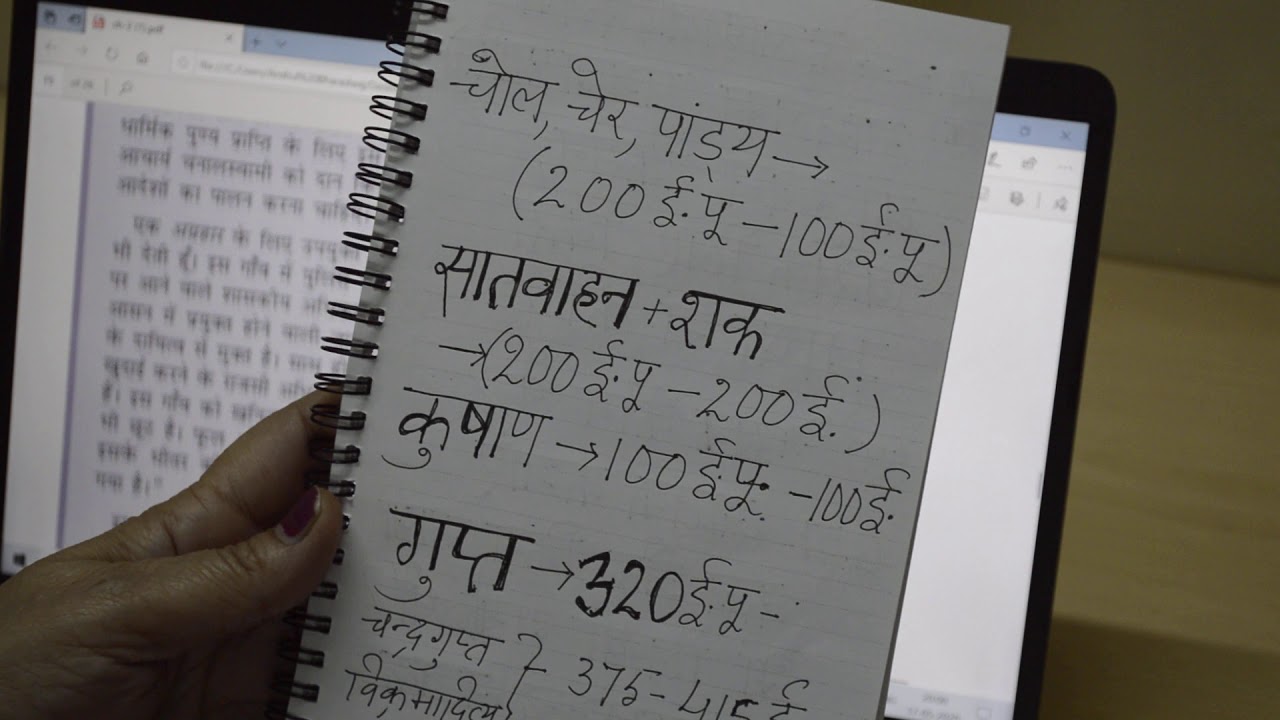 चोल, चेर, पांड्य →
(200 ई.पू – 100 ई.पू)
सातवाहन + शक
→ (200 ई.पू – 200 ई.)
कुषाण → 100 ई.पू. – 100 ई.
गुप्त → 320 ई.पू –
चन्द्रगुप्त } 375 – 415 ई
विक्रमादित्य
धार्मिक पुण्य प्राप्ति के लिए
आचार्य चनालस्वामी को दान
आदेशों का पालन करना चाहि
एक अग्रहार के लिए उपयुक्त
भी देती हूँ। इस गाँव में पुलि
पर आने वाले शासकीय
आसन में प्रयुक्त होने वाली
के दायित्व से मुक्त है। साथ ही
खुदाई करने के राजसी
हैं। इस गाँव को खनि
भी छूट है। फूल
इसके भीतर
गया है।"